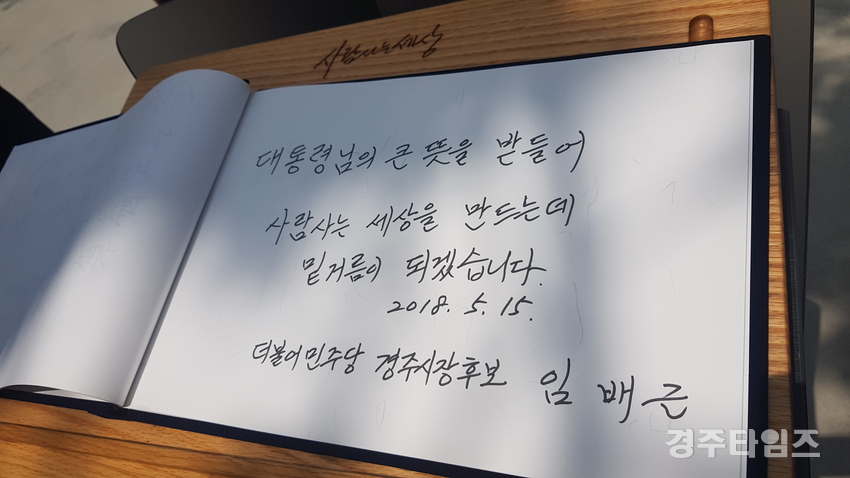 사람사는세상
대통령님의 큰 뜻을 받들어
사람사는 세상을 만드는데
밑거름이 되겠습니다.
2018. 5. 15.
더불어민주당 경주시장후보 임 배 근
경주타임즈